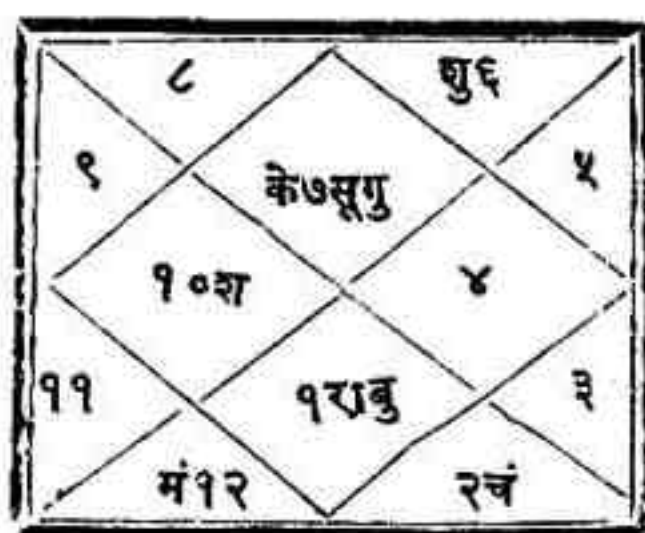 ८ शु६
९ के७सूगु ५
१०श ४
११ १राबु ३
मं१२ २चं